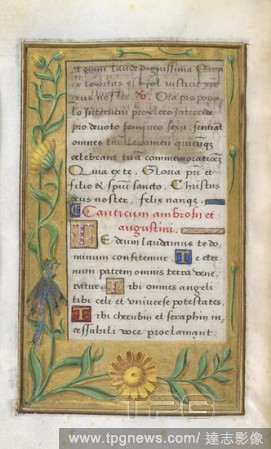 et omni laude dignissima
noster. Ora pro popu
lo interveni pro clero intercede
pro devoto femineo sexu sentiant
omnes tuum levamen quicunq
celebrant tua commemoratione
Quia ex te. Gloria pri et
filio et spui sancto. Christus
deus noster. felix nanq
Canticum ambrosii et
augustini.
Te deum laudamus te do
minum confitemur. Te eter
num patrem omnis terra vene
ratur. Tibi omnes angeli
tibi celi et universe potestates.
Tibi cherubin et seraphin in
cessabili voce proclamant.
TPG
www.tpgnews.com/達志影像